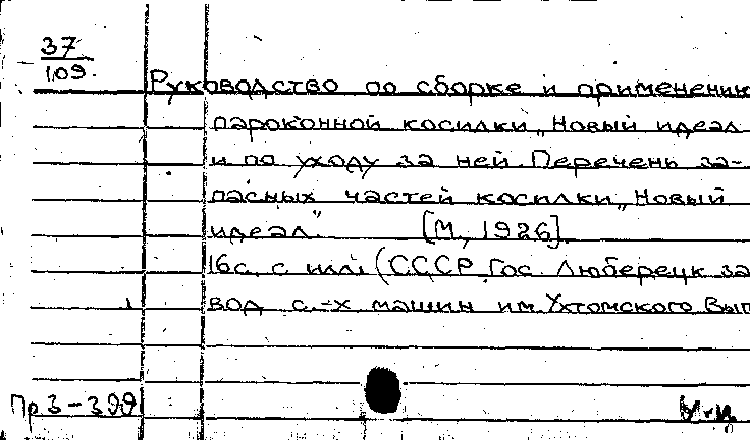 37
109.
Руководство по сборке и применению
пароконной косилки „Новый идеал
и по уходу за ней. Перечень за-
пасных частей косилки „Новый
идеал." [М, 1926].
16с. с илл. (СССР. Гос. Люберецк за
вод с.-х машин им. Ухтомского Вып
Пр 3-399